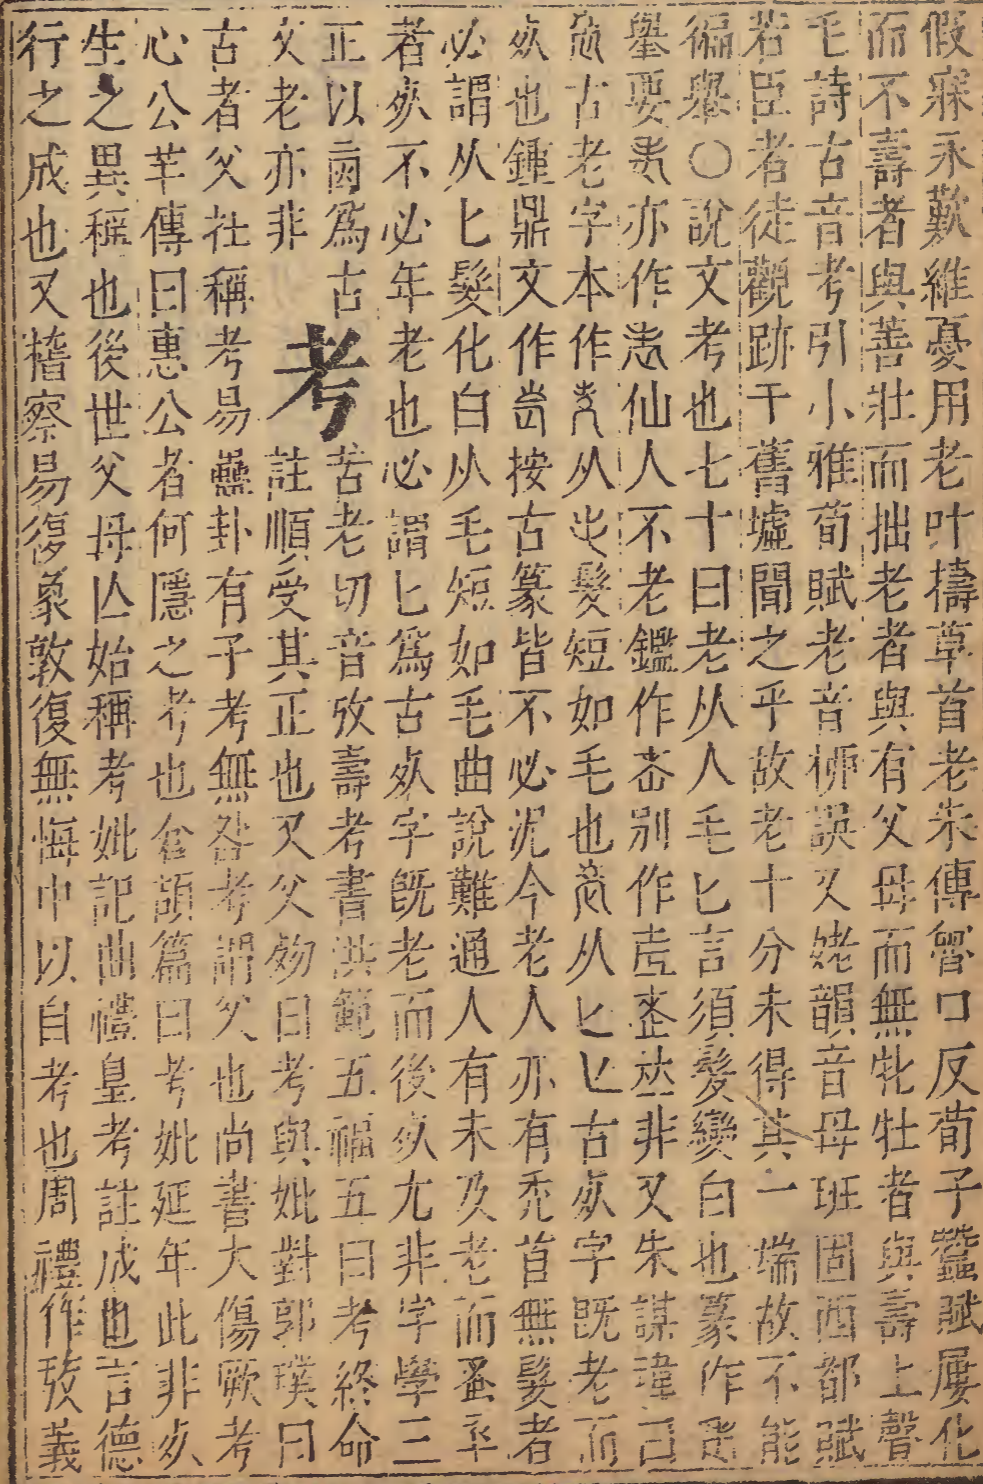 假寐永歎維憂用老叶擣草首老朱傳魯口反荀子蠶賦屢化
而不壽者與善壯而拙老者與有父母而無牝牡者與壽上聲
毛詩古音考引小雅荀賦老音栁誤又姥韻音母班固西都賦
若臣者徒觀跡于舊墟聞之乎故老十分未得其一端故不能
徧舉○說文考也七十曰老从人毛匕言須髮變白也篆作
舉要亦作仙人不老鑑作別作非又朱謀㙔曰
古老字本作从髮短如毛也从匕匕古字既老而
也鍾鼎文作按古篆皆不必泥今老人亦有禿首無髮者
必謂从匕髮化白从毛短如毛曲說難通人有未及老而蚤卒
若㱙不必年老也必謂匕爲古㱙字旣老而後㱙尤非字學三
正以㘝爲古考苦老切音攷壽考書洪範五福五曰考終命
文老亦非註順受其正也又父歾曰考與妣對郭璞曰
古者父社稱考易蠱卦有子考無咎考謂父也尚書大傷厥考
心公羊傳曰惠公者何隱之考也倉頡篇曰考妣延年此非㱙
生之異稱也後世父母亾始稱考妣記曲禮皇考註成也言德
行之成也又稽察易復象敦復無悔中以自考也周禮作攷義